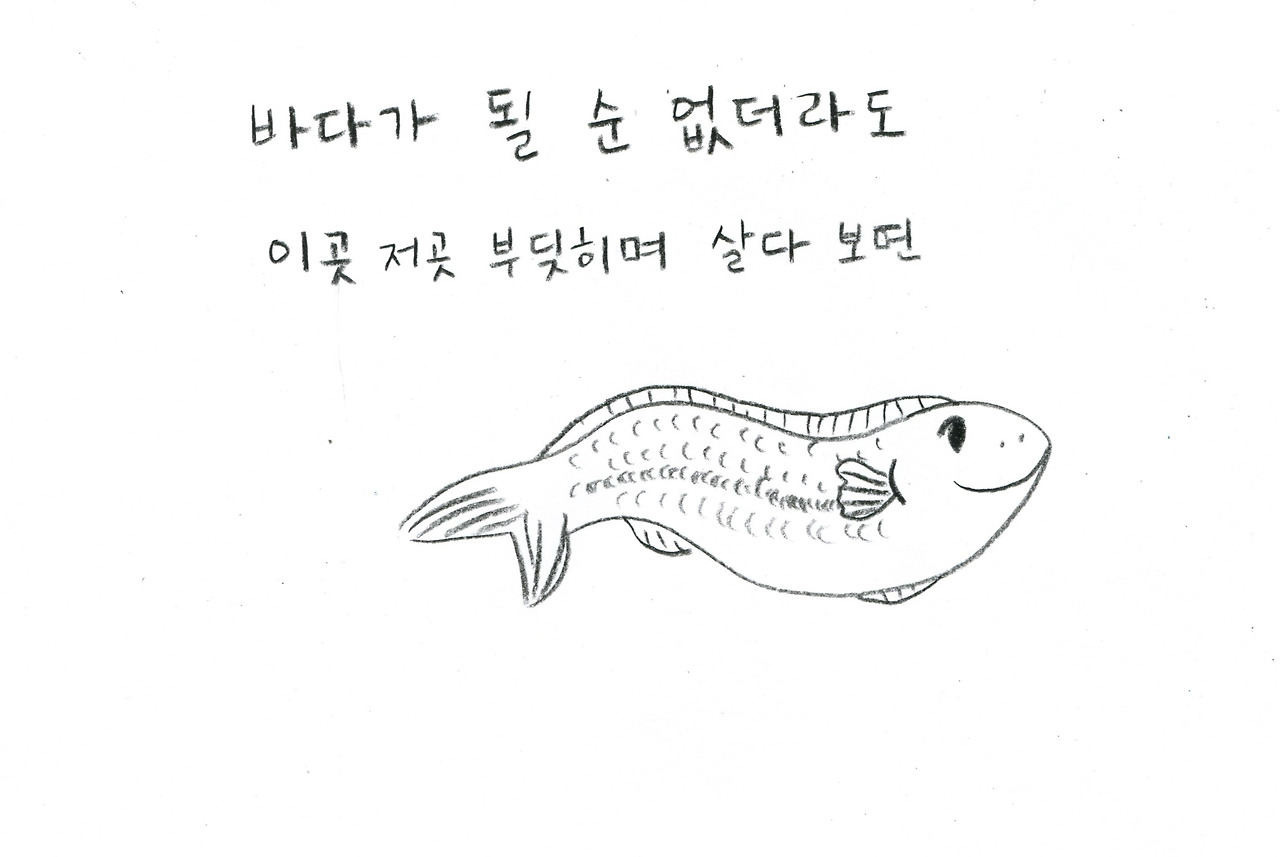 바다가 될 순 없더라도
이곳 저곳 부딪히며 살다 보면